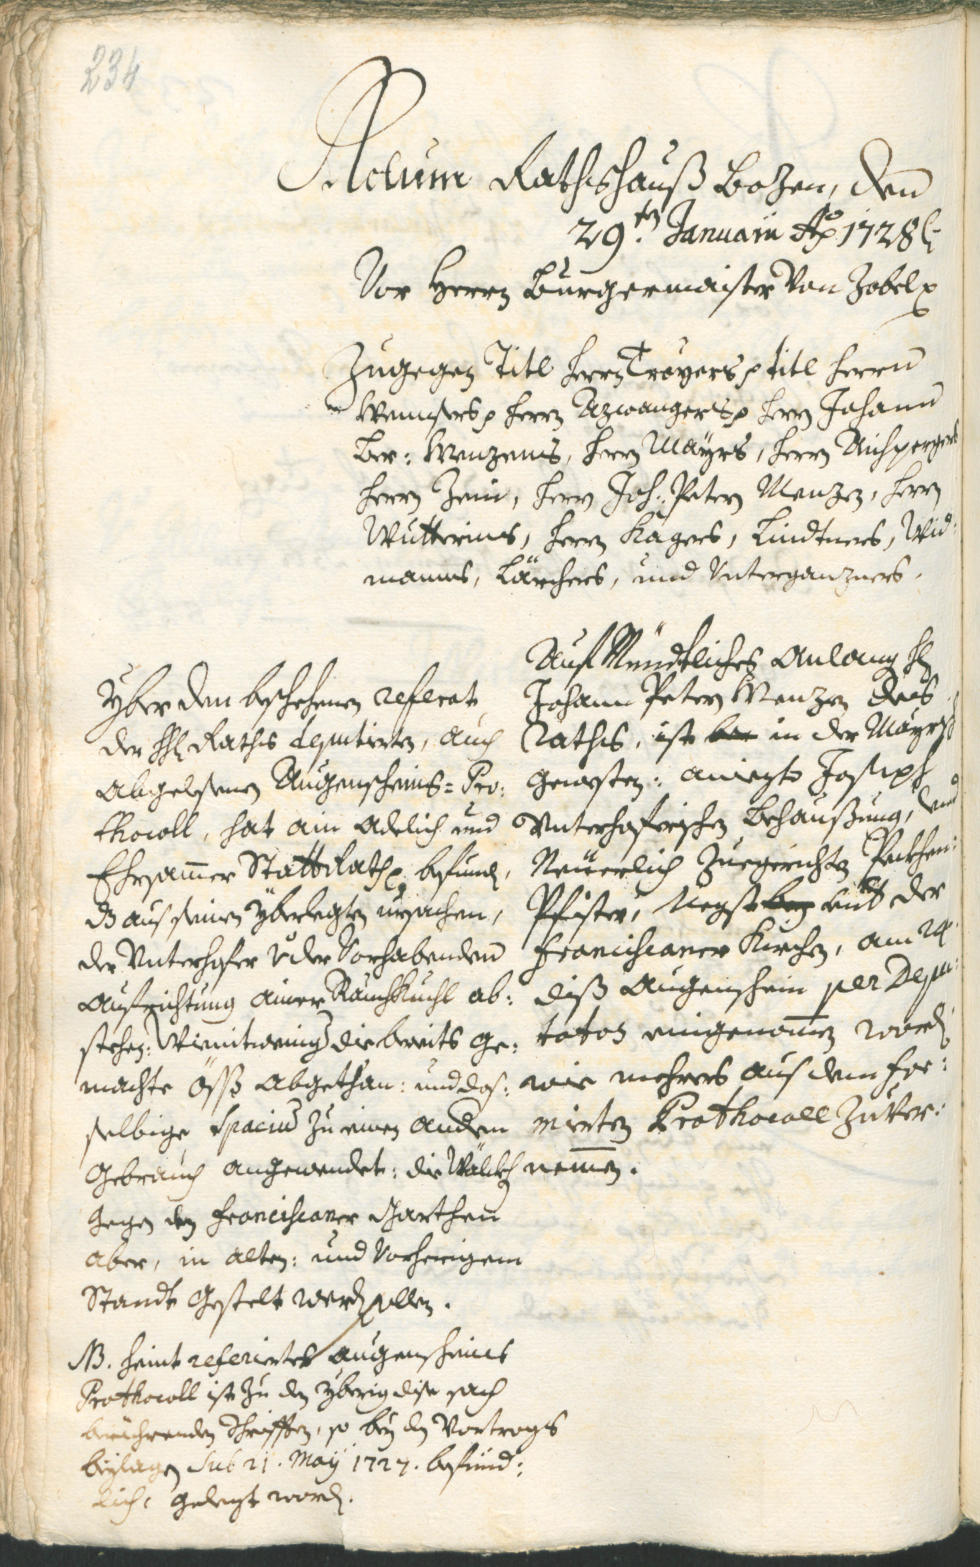 234
Actum Rathshauß Bozen, den
29.ten Januarii Ao 1728
Vor Herrn Burgermaister Von Zobel
Zugegen Titl Herrn Troyers p titl Herrn
Wensers p Herrn Azwangers p Herrn Johann
Ber: Wenzens, Herrn Mayrs, Herrn Aichpergers
Herrn Zenin, Herrn Joh: Peter Menzen, Herrn
Wutterins, Herrn Kagers, Lindtners, Wid:
manns, Lärchers, und Unterganzners.
Auf Mündtliches Anlang H
Johann Peter Menzen des
Rathß, ist in der Mayrs
gewesten: aniezt Joseph
Unterhoferischen Behaußung, und
Neüerlich Zuegerichten Pekhen:
Pfister, negst der
Franciscaner Kirchen, am 24
diß Augenschein per Depu:
tatos eingenommen worden
wie mehrers aus dem for:
mierten Prothocoll Zuver:
nemen.
Yber den beschehenen referat
der HH Raths deputierten, auch
Abgelesenen Augenscheins=Pro:
thocoll, hat ain Adelich und
Ehrsammer Statt Rath befunden,
aus seinen yberlegten ursachen,
der Unterhofer von der Vorhabenden
Aufrichtung ainer Rauchkuchl ab:
stehen: die bereits ge:
machte Öss Abgethan: und das:
selbige Spacium zu einen anderen
Gebrauch angewendet: die
gegen den Franciscaner Garthen
aber, in alten: und vorherigem
Standt gestelt werden sollen.
NB. heint referiertes Augenscheins
Prothocoll ist zu den yberig dise sach
beriehrenden schrifften, so bey den Vortrags
beylagen sub 21. May 1727. befind:
lich: gelegt worden.